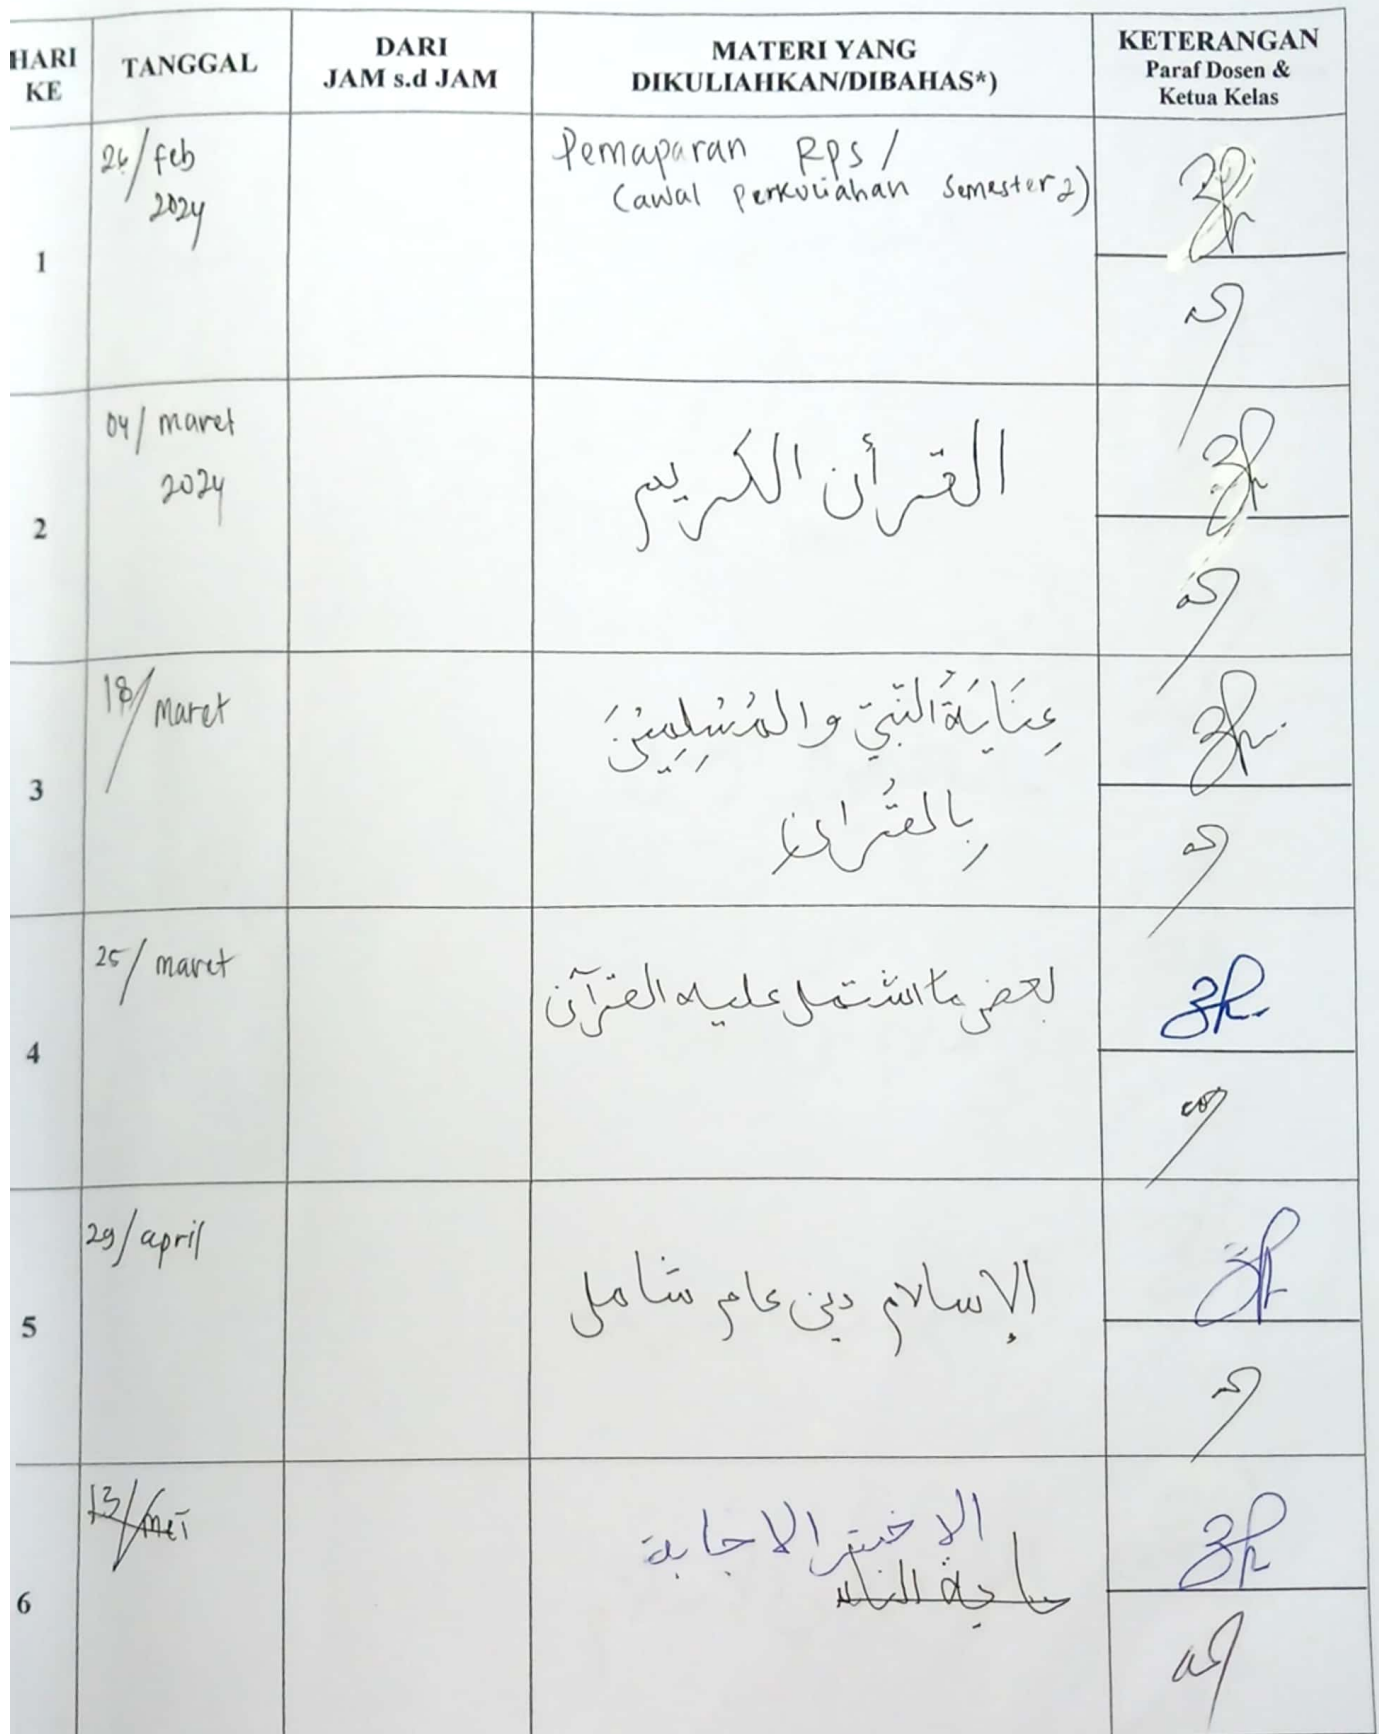 HARI KE
TANGGAL
DARI
JAM s.d JAM
MATERI YANG
DIKULIAHKAN/DIBAHAS*)
KETERANGAN
Paraf Dosen &
Ketua Kelas
1
26/feb
2024
Pemaparan RPS /
(awal Perkuliahan Semester 2)
2
04/ maret
2024
القرأن الكريم
3
18/ Maret
عِنَايَةُ النَّبِيّ والمُسْلِمِيْنَ
بِالقُرانِ
4
25/ maret
بعض ما اشتمل عليه القرآن
5
29/ april
الإسلام دين عام شامل
6
13/mei
الاختبر الاجابة
حاجة الناس